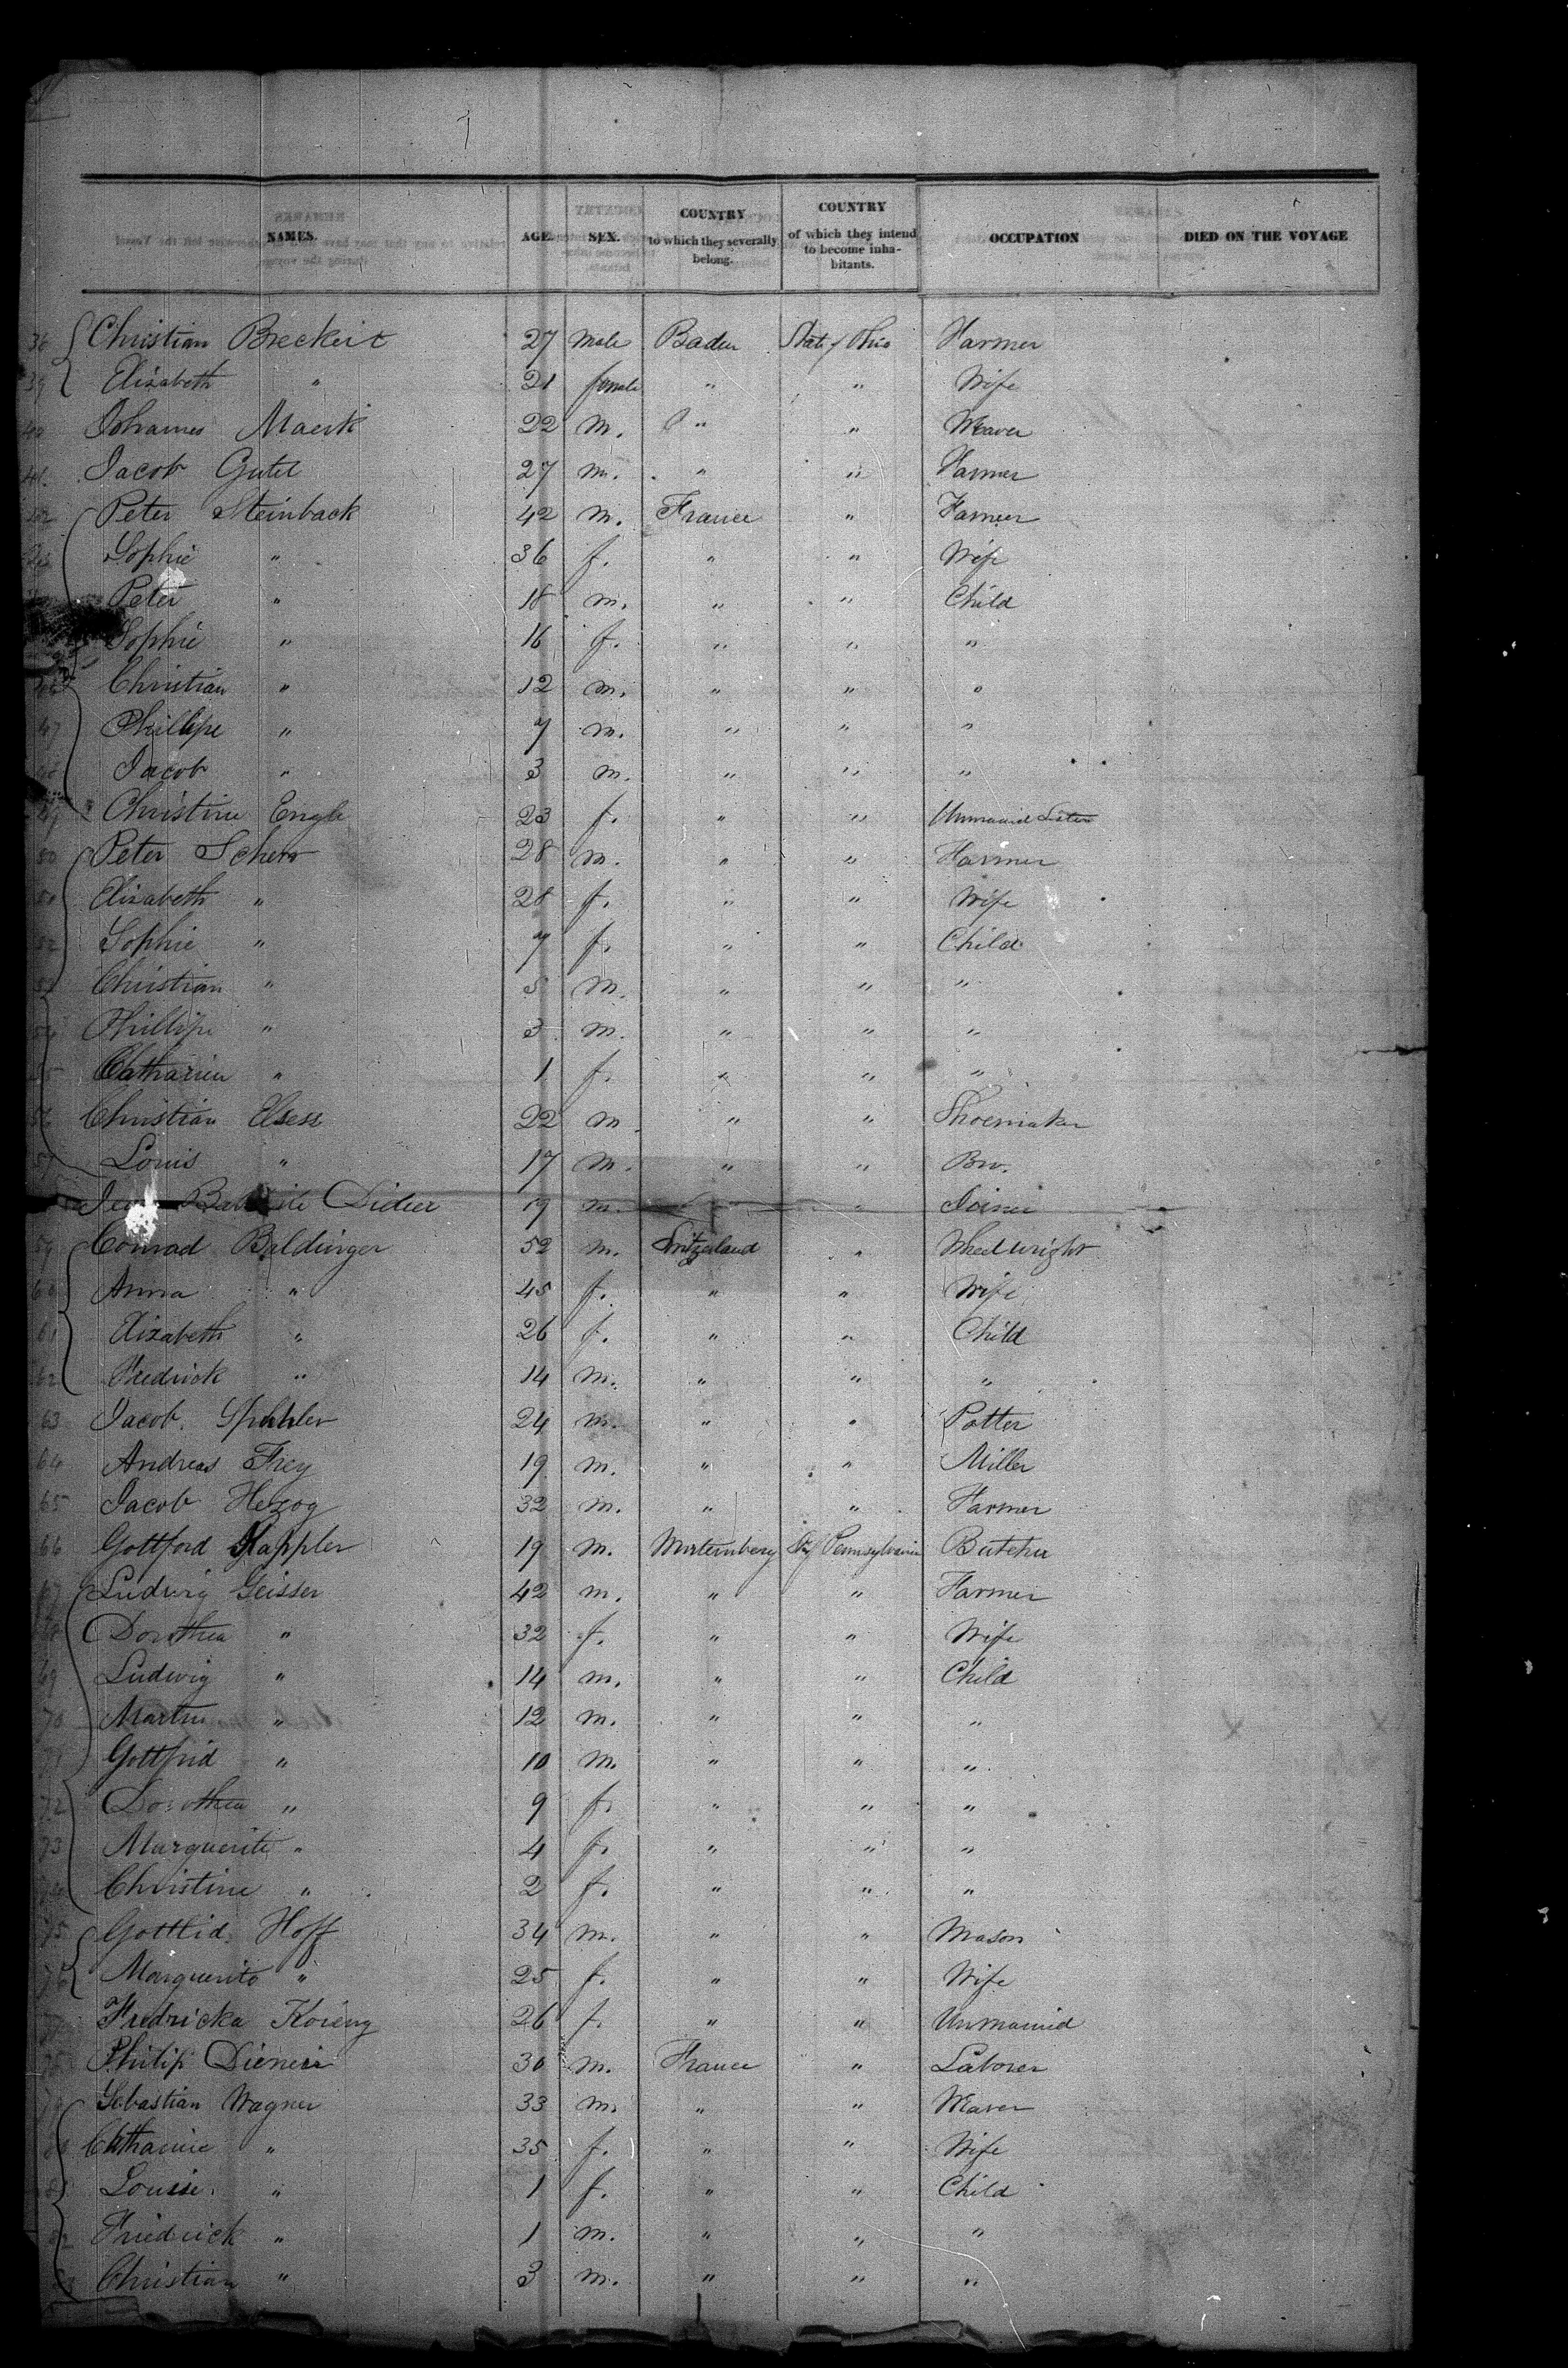 NAMES. AGE. SEX. COUNTRY to which they severally belong. COUNTRY of which they intend to become inhabitants. OCCUPATION DIED ON THE VOYAGE
Christian Breckeit 27 male Baden State of Ohio Farmer
39 Elizabeth " 21 female " " Wife
Johannes Maerk 22 m. " " Weaver
Jacob Gutel 27 m. " " Farmer
Peter Steinback 42 m. France " Farmer
Sophie " 36 f. " " Wife
Peter " 18 m. " " Child
Sophie " 16 f. " " "
Christian " 12 m. " " "
47 Phillipe " 7 m. " " "
Jacob " 3 m. " " "
49 Christine Engle 23 f. " " Unmarried Sister
50 Peter Scherr 28 m. " " Farmer
51 Elizabeth " 28 f. " " Wife
52 Sophie " 7 f. " " Child
53 Christian " 5 m. " " "
54 Phillipe " 3 m. " " "
55 Catharien " 1 f. " " "
56 Christian Elsess 22 m " " Shoemaker
57 Louis " 17 m. " " Bro.
Didier 19 m. " Joiner
59 Conrad Baldinger 52 m. Switzerland " Wheelwright
60 Anna " 45 f. " " Wife
61 Elizabeth " 26 f. " " Child
62 Fredrick " 14 m. " " "
63 Jacob 24 m. " " Potter
64 Andreas Frey 19 m. " " Miller
65 Jacob Herzog 32 m. " " Farmer
66 Gottford Kappler 19 m. Wurtemberg St of Pennsylvania Butcher
67 Ludwig Geisser 42 m. " " Farmer
68 Dorothea " 32 f. " " Wife
69 Ludwig " 14 m. " " Child
70 Martin " 12 m. " " "
71 Gottfrid " 10 m. " " "
72 Dorothea " 9 f. " " "
73 Marguerite " 4 f. " " "
74 Christine " 2 f. " " "
75 Gottlid Hoff 34 m. " " Mason
76 Marguerite " 25 f. " " Wife
Fredricka Koieng 26 f. " " Unmarried
Philip Dieneri 30 m. France " Laborer
79 Sebastian Wagner 33 m. " " Weaver
Catharine " 35 f. " " Wife
Louise " 1 f. " " Child
82 Friedrick " 1 m. " " "
Christian " 3 m. " " "